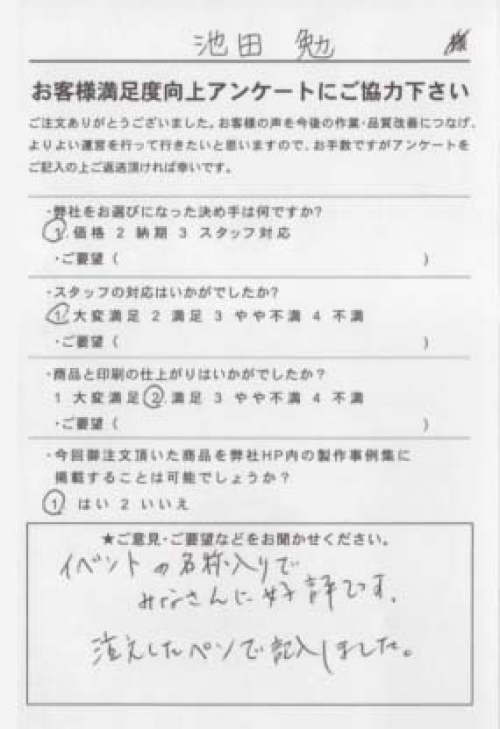 池田 勉
お客様満足度向上アンケートにご協力下さい
ご注文ありがとうございました。お客様の声を今後の作業・品質改善につなげ、
よりよい運営を行って行きたいと思いますので、お手数ですがアンケートを
ご記入の上ご返送頂ければ幸いです。
・弊社をお選びになった決め手は何ですか?
1 価格 2 納期 3 スタッフ対応
・ご要望 ( )
・スタッフの対応はいかがでしたか?
1 大変満足 2 満足 3 やや不満 4 不満
・ご要望 ( )
・商品と印刷の仕上がりはいかがでしたか?
1 大変満足 2 満足 3 やや不満 4 不満
・ご要望 ( )
・今回御注文頂いた商品を弊社HP内の製作事例集に
掲載することは可能でしょうか?
1 はい 2 いいえ
★ご意見・ご要望などをお聞かせください。
イベントの名称入りで
みなさんに好評です。
したペンで記入しました。